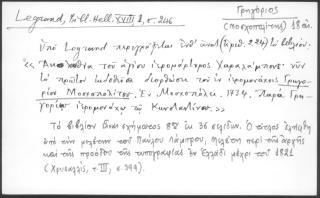 Legrand, Bibl. Hell. XVIII 1, σ. 246
Γρηγόριος
(Μοσχοπολίτης) 18 αι.
Ὑπὸ Legrand περιγράφεται ὑπ' ἀριθ. 224 τὸ βιβλίον:
«Ἀκολουθία τοῦ ἁγίου ἱερομάρτυρος Χαραλάμπους νῦν
τὸ πρῶτον ἐκδοθεῖσα διορθώσει τοῦ ἐν ἱερομονάχοις Γρηγο-
ρίου Μοσχοπολίτου. Ἐν Μοσχοπόλει, 1734. Παρὰ Γρη-
γορίῳ ἱερομονάχῳ τῷ Κωνσταντινίδῃ.»
Τὸ βιβλίον εἶναι σχήματος 8ον ἐκ 36 σελίδων. Ὁ τίτλος ἐλήφθη
ἀπὸ τὴν μελέτην τοῦ Παύλου Λάμπρου, Μελέτη περὶ τῆς ἀρχῆς
καὶ τῆς προόδου τῆς τυπογραφίας ἐν Ἑλλάδι μέχρι τοῦ 1821
(Χρυσαλλίς, τ. III, σ. 399).